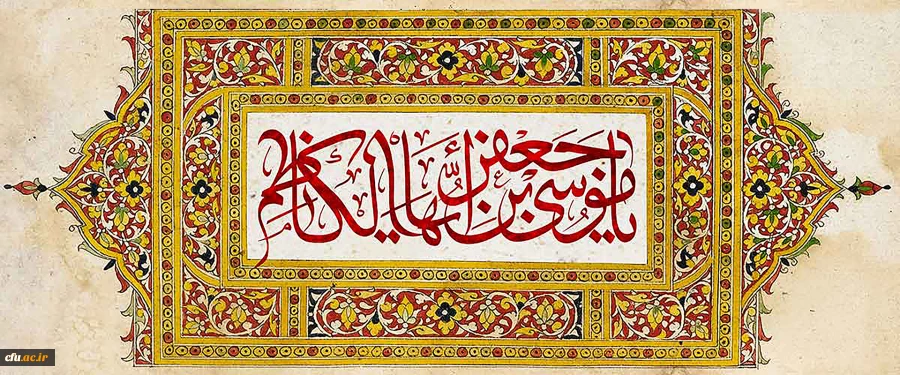 يا موسى بن جعفر أيها الكاظم
cfu.ac.ir